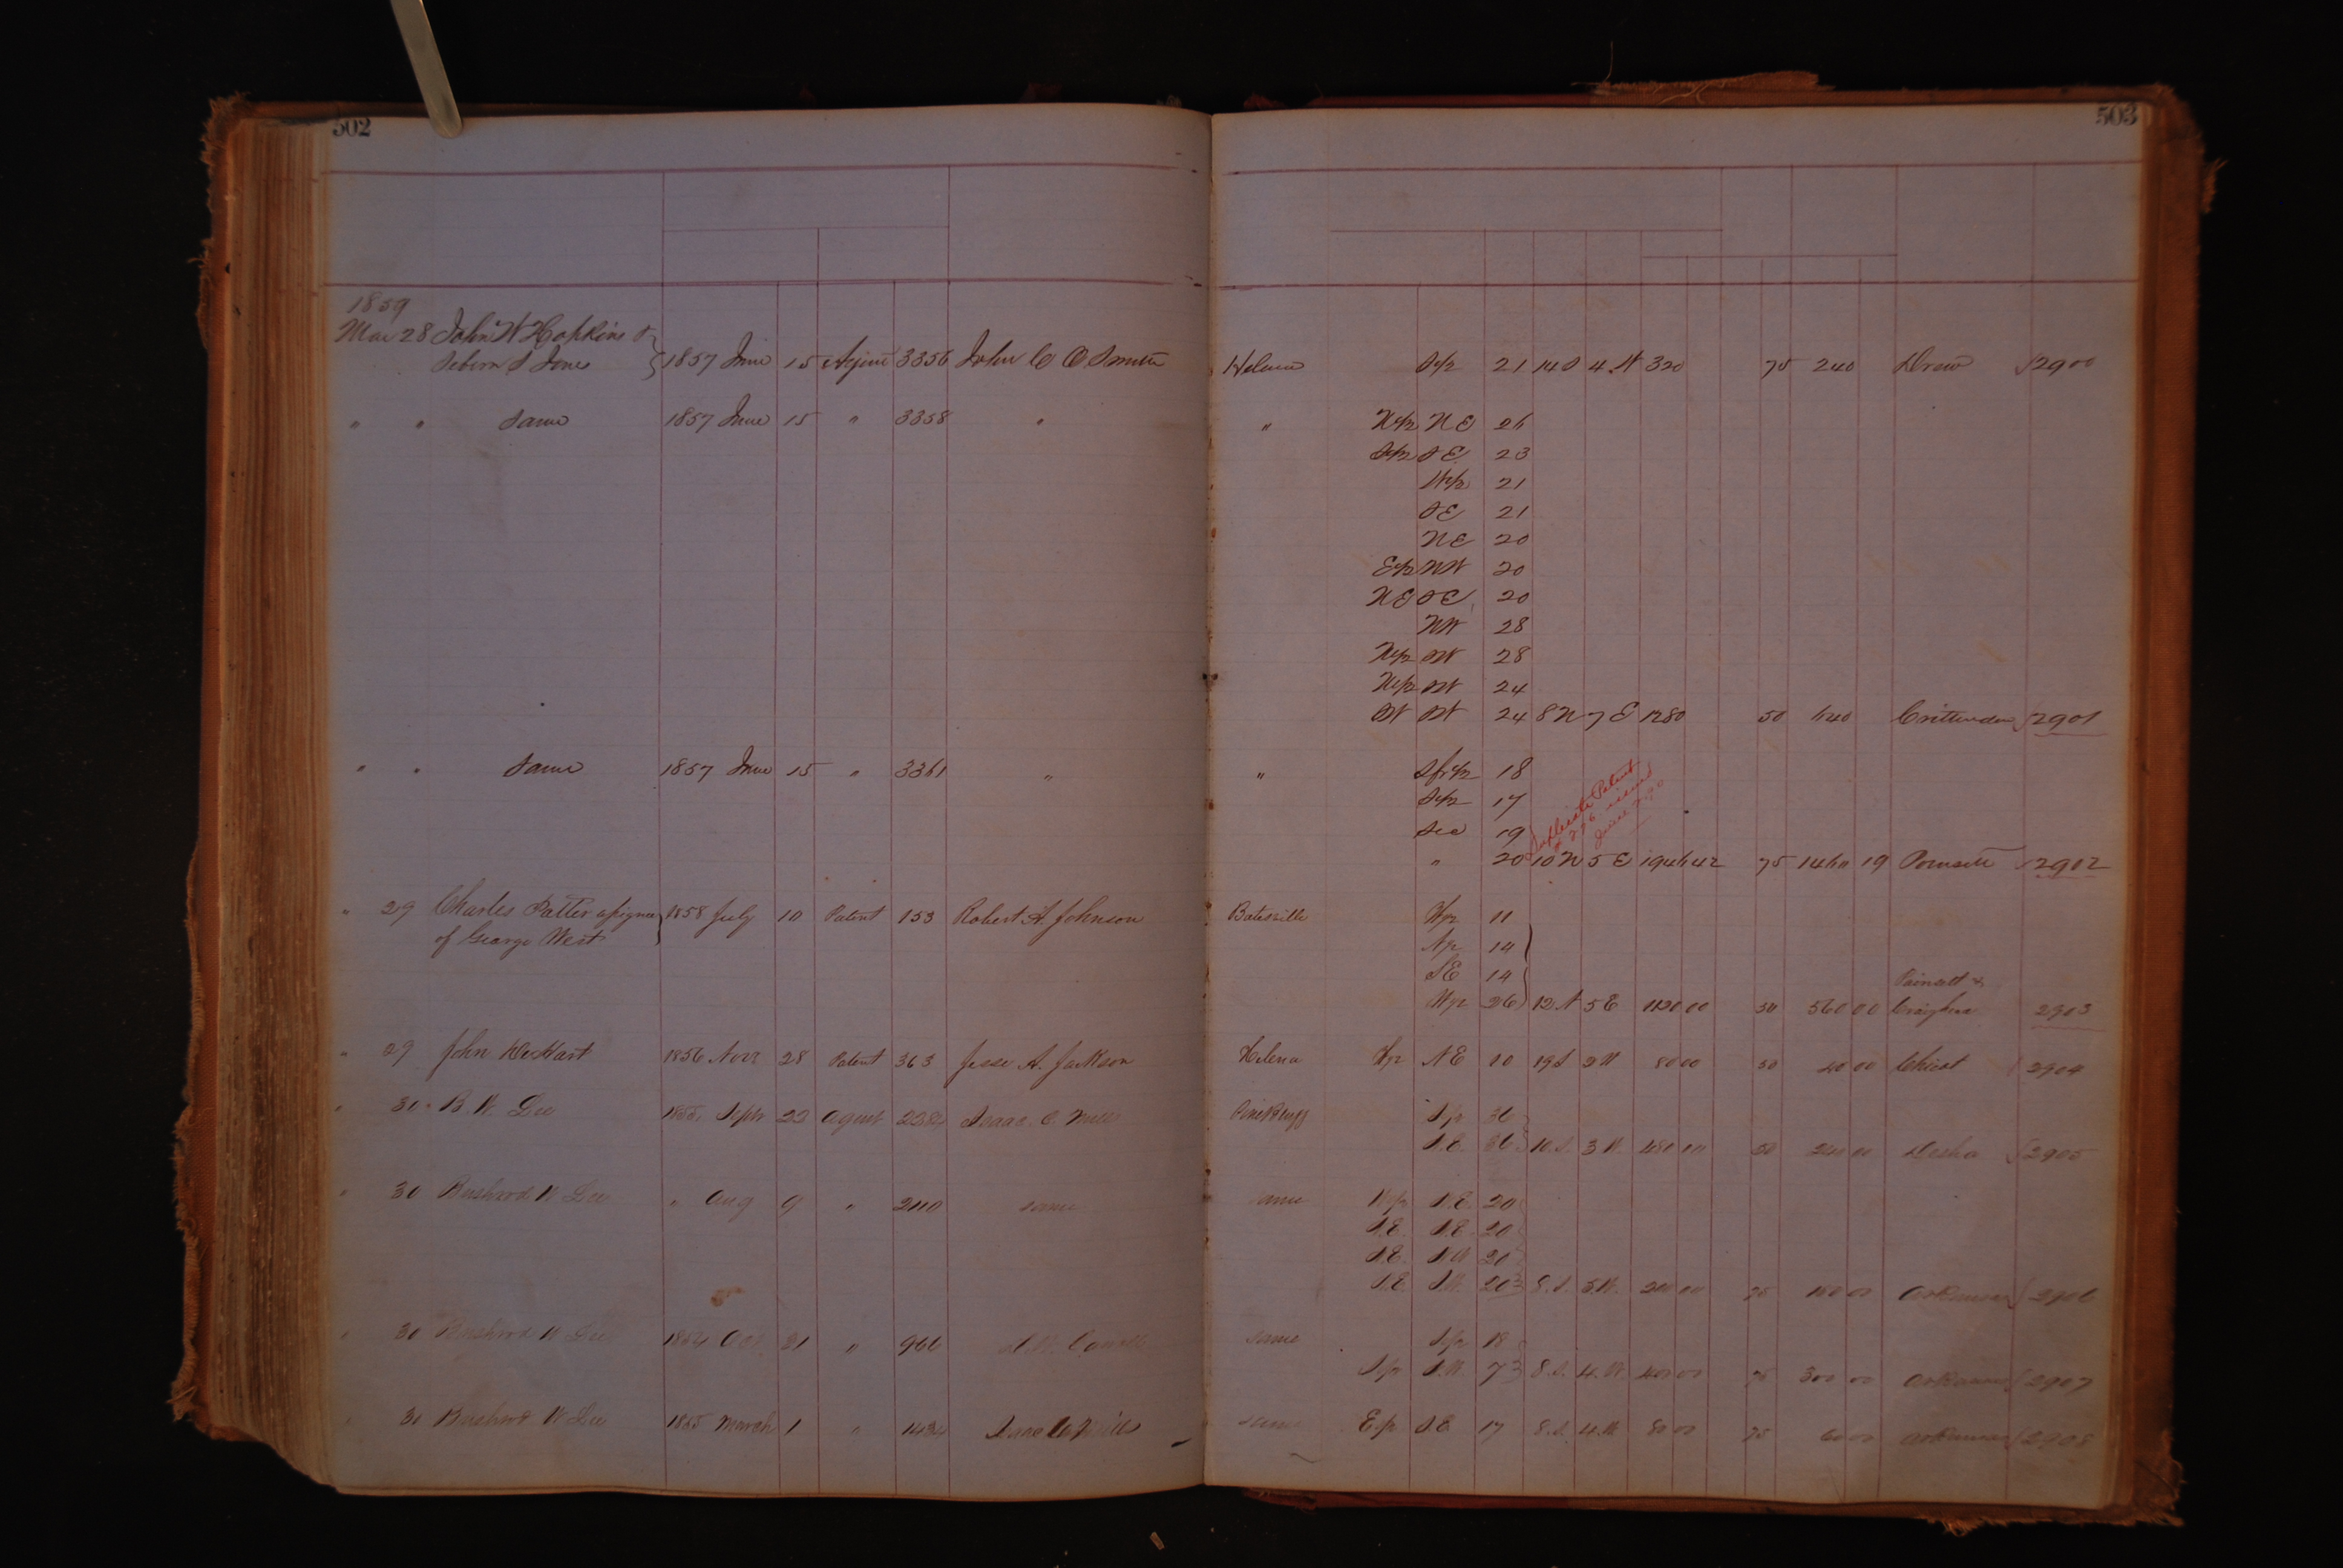 502
503
1859
Mar 28 John W Hopkins &
Seborn S Jone 1857 June 15 Agent 3356 John C O Smith Helena S 1/2 21 14 S 4 W 320 75 240 Drew 2900
" " Same 1857 June 15 " 3358 " " W 1/2 NE 26
S 1/2 SE 23
W 1/2 21
SE 21
NE 20
E 1/2 NW 20
NE SE 20
NW 28
SW 28
SW 24
SW SW 24 8 N 7 E 1280 50 640 Crittenden 2901
" " Same 1857 June 15 " 3361 " " S fr 1/2 18
S 1/2 17
Sec 19
Duplicate Patent
issued
" 20 10 N 5 E 1946 42 75 1460 19 Poinsett 2902
" 29 Charles Patter assignee 1858 July 10 Patent 153 Robert A. Johnson Batesville W 1/2 11
of George West
N 1/2 14
SE 14
Poinsett &
W 1/2 26 12 N 5 E 1120 00 50 560 00 Craighead 2903
" 29 John DeHart 1856 Novr 28 Patent 363 Jesse A. Jackson Helena W 1/2 NE 10 19 S 2 W 80 00 50 40 00 Chicot 2904
" 30 B. W. Lee 1855 Sept 22 Agent Isaac C. Mills Pine Bluff S 1/2 36
S.E. 36 10 S. 3 W. 480 00 50 240 00 Desha 2905
" 30 Bushrod W Lee " Aug 9 " 2110 same same W 1/2 N.E. 20
S.E. N.E. 20
N.E. NW 20
S.E. 20 8. S. 5. W. 75 Arkansas 2906
" 30 Bushrod W Lee 1854 Oct 31 " 966 same S 1/2 18
S 1/2 S.W. 7 8. S. 4. W. 400 00 75 300 00 Arkansas 2907
" 30 Bushrod W Lee 1855 March 1 " 1434 Isaac C Mills same E 1/2 S.E. 17 8. S. 4. W. 80 00 75 60 00 Arkansas 2908